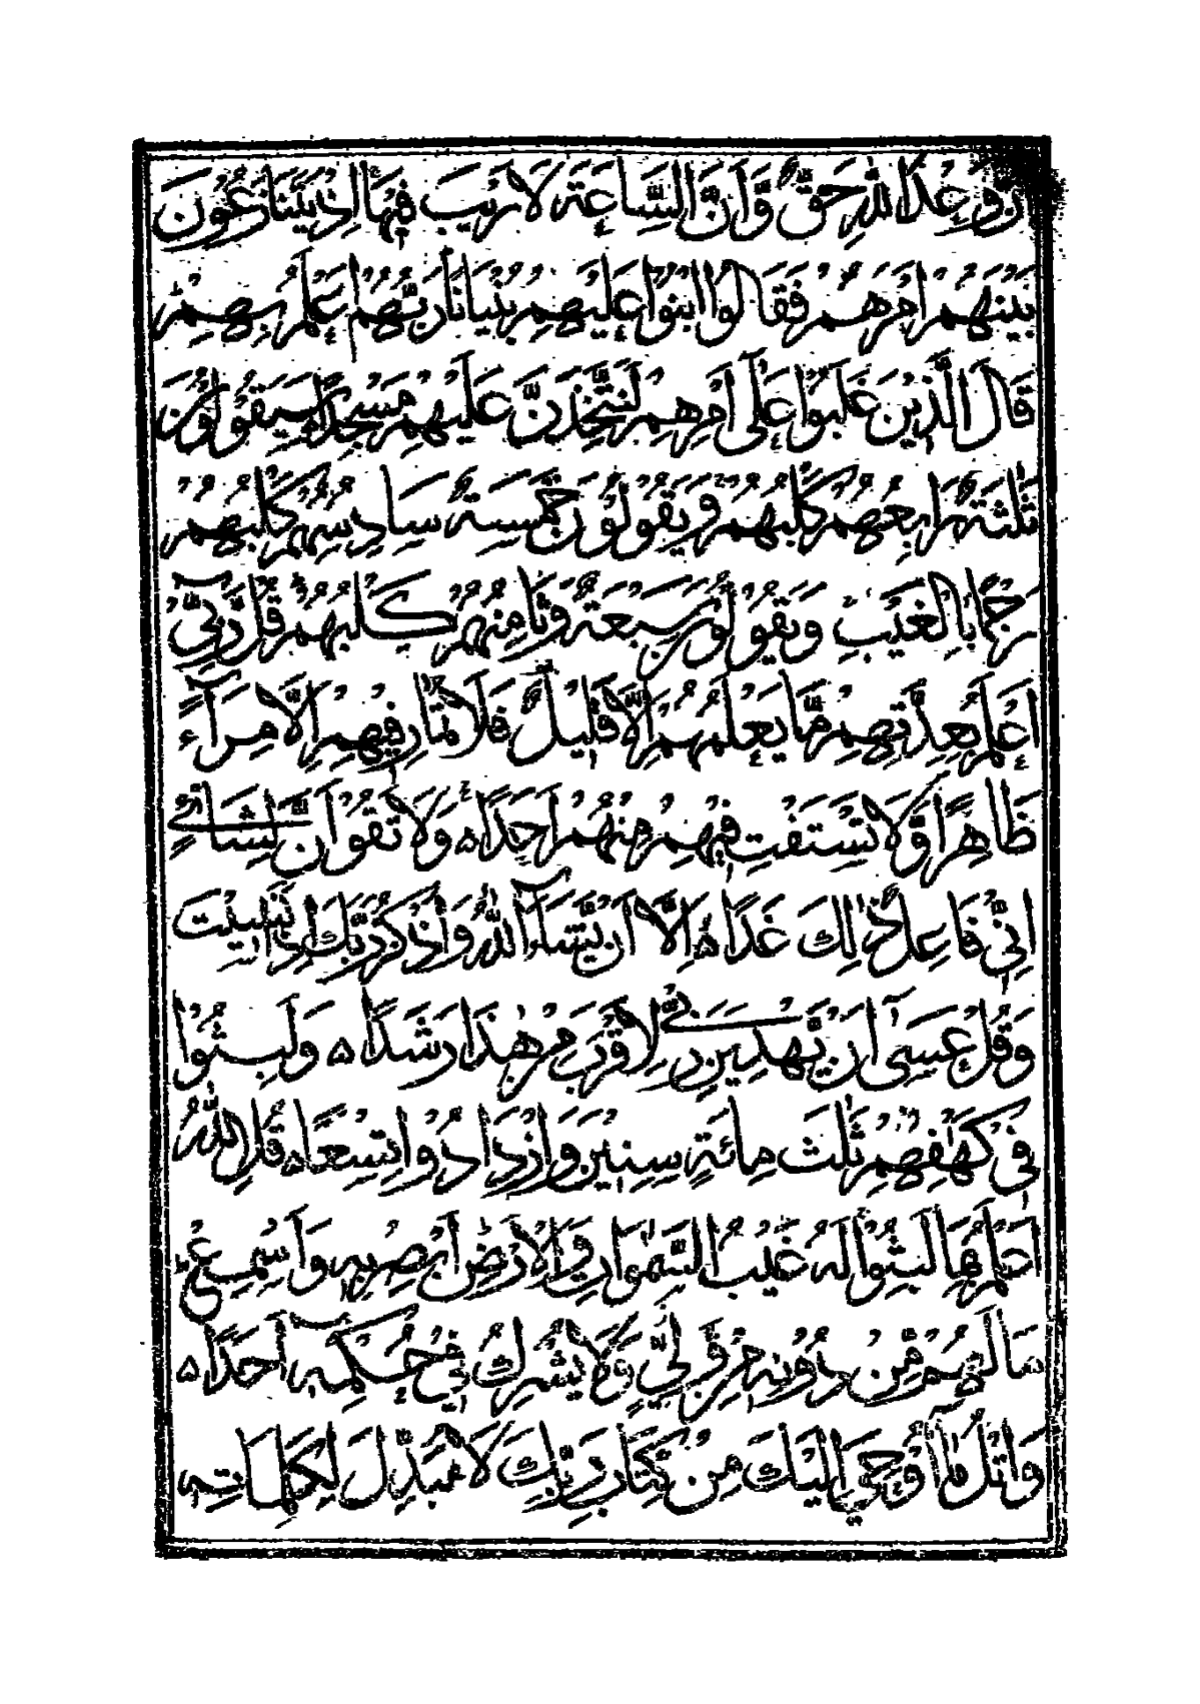 نَّ وَعْدَ اللّٰهِ حَقٌّ وَّاَنَّ السَّاعَةَ لَا رَيْبَ فِيْهَا اِذْ يَتَنَازَعُوْنَ
بَيْنَهُمْ اَمْرَهُمْ فَقَالُوا ابْنُوْا عَلَيْهِمْ بُنْيَانًا رَبُّهُمْ اَعْلَمُ بِهِمْ
قَالَ الَّذِيْنَ غَلَبُوْا عَلٰٓى اَمْرِهِمْ لَنَتَّخِذَنَّ عَلَيْهِمْ مَسْجِدًا سَيَقُوْلُوْنَ
ثَلٰثَةٌ رَّابِعُهُمْ كَلْبُهُمْ وَيَقُوْلُوْنَ خَمْسَةٌ سَادِسُهُمْ كَلْبُهُمْ
رَجْمًا بِالْغَيْبِ وَيَقُوْلُوْنَ سَبْعَةٌ وَّثَامِنُهُمْ كَلْبُهُمْ قُلْ رَّبِّيْٓ
اَعْلَمُ بِعِدَّتِهِمْ مَّا يَعْلَمُهُمْ اِلَّا قَلِيْلٌ فَلَا تُمَارِ فِيْهِمْ اِلَّا مِرَآءً
ظَاهِرًا وَّلَا تَسْتَفْتِ فِيْهِمْ مِنْهُمْ اَحَدًا ۵ وَلَا تَقُوْلَنَّ لِشَايْءٍ
اِنِّيْ فَاعِلٌ ذٰلِكَ غَدًا ۵ اِلَّآ اَنْ يَّشَآءَ اللّٰهُ وَاذْكُرْ رَّبَّكَ اِذَا نَسِيْتَ
وَقُلْ عَسٰٓى اَنْ يَّهْدِيَنِ رَبِّيْ لِاَقْرَبَ مِنْ هٰذَا رَشَدًا ۵ وَلَبِثُوْا
فِيْ كَهْفِهِمْ ثَلٰثَ مِائَةٍ سِنِيْنَ وَازْدَادُوْا تِسْعًا ۵ قُلِ اللّٰهُ
اَعْلَمُ بِمَا لَبِثُوْا لَهٗ غَيْبُ السَّمٰوٰتِ وَالْاَرْضِ اَبْصِرْ بِهٖ وَاَسْمِعْ
مَا لَهُمْ مِّنْ دُوْنِهٖ مِنْ وَّلِيٍّ وَّلَا يُشْرِكُ فِيْ حُكْمِهٖٓ اَحَدًا ۵
وَاتْلُ مَآ اُوْحِيَ اِلَيْكَ مِنْ كِتَابِ رَبِّكَ لَا مُبَدِّلَ لِكَلِمَاتِهٖ